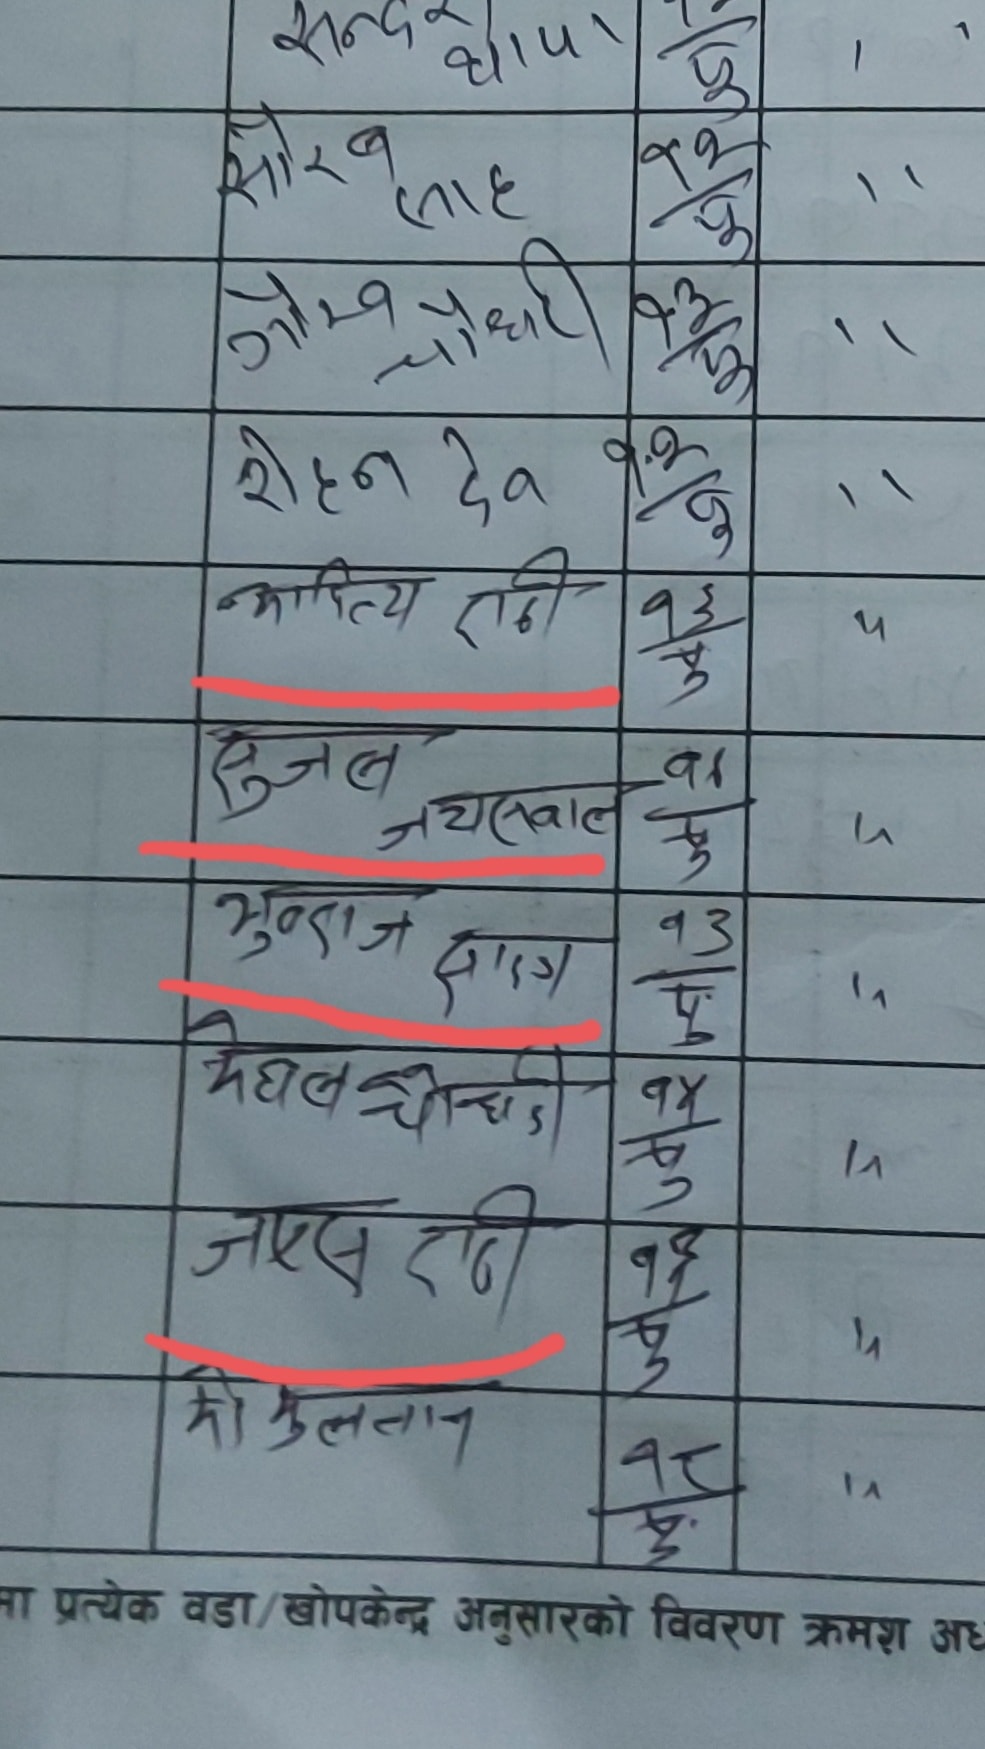 थापा १२/पु
सौरव साह १२/पु "
गौरव चौधरी १३/पु "
रोहन देव १२/पु "
आदित्य राठी १३/पु "
सुजल जयसवाल १४/पु "
युवराज १३/पु "
मेघल चौधरी १४/पु "
जएस राठी पु "
मो मुलतान १८/पु "
मा प्रत्येक वडा/खोपकेन्द्र अनुसारको विवरण क्रमश